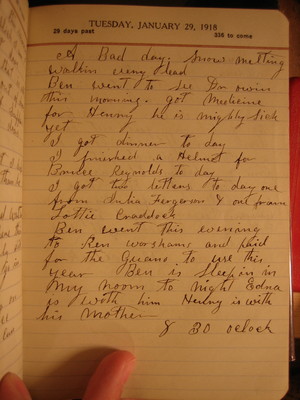 TUESDAY, JANUARY 29, 1918
29 days past 336 to come
A Bad day. Snow melting
walkin veny bad
Ben went to see Dr owin
this morning. got Medicine
for Henny he is mighty Sick
yet
I got dinner to day
I finished a Helmet for
Reynolds to day
I got two lettens to day one
from Julia Fergerson & one from
Lottie Craddock
Ben went this evening
to Ren worshams and paid
for the Guano to use this
year Ben is Sleepin in
my room to night Edna
is with him Henny is with
his Mother
8 30 oclock